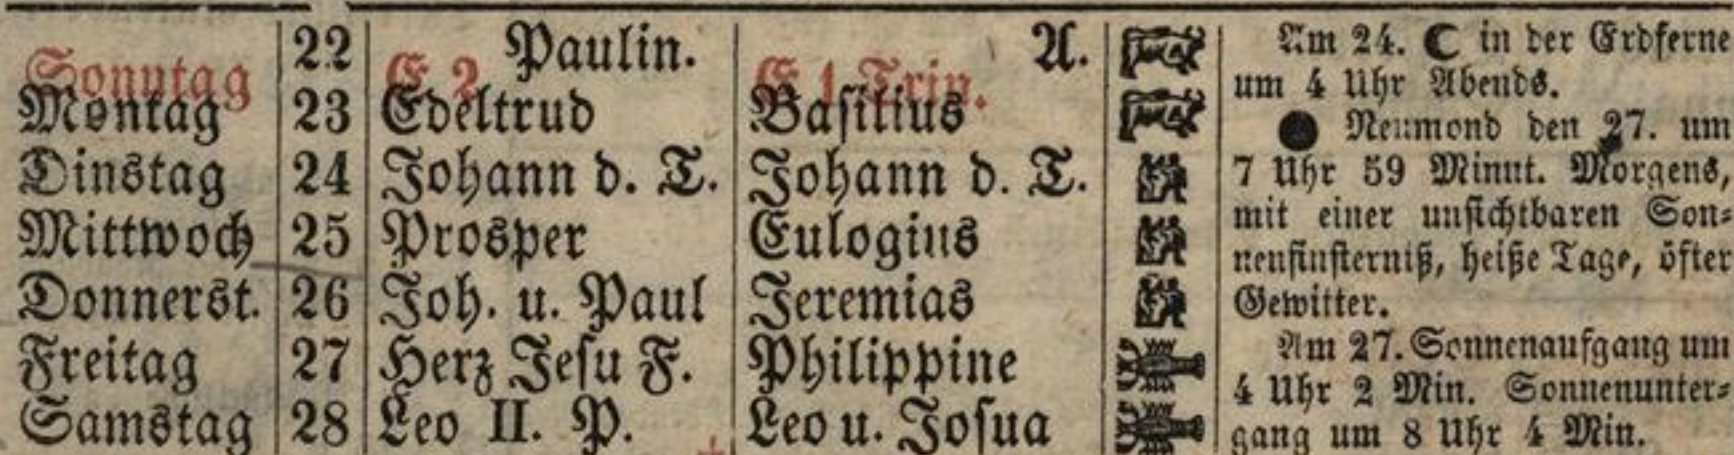 Sonntag 22 E 2 Paulin. E 1 Trin. A.
Montag 23 Edeltrud Basilius
Dinstag 24 Johann d. T. Johann d. T.
Mittwoch 25 Prosper Eulogius
Donnerst. 26 Joh. u. Paul Jeremias
Freitag 27 Herz Jesu F. Philippine
Samstag 28 Leo II. P. Leo u. Josua
Am 24. ☾ in der Erdferne
um 4 Uhr Abends.
● Neumond den 27. um
7 Uhr 59 Minut. Morgens,
mit einer unsichtbaren Son-
nenfinsterniß, heiße Tage, öfter
Gewitter.
Am 27. Sonnenaufgang um
4 Uhr 2 Min. Sonnenunter-
gang um 8 Uhr 4 Min.